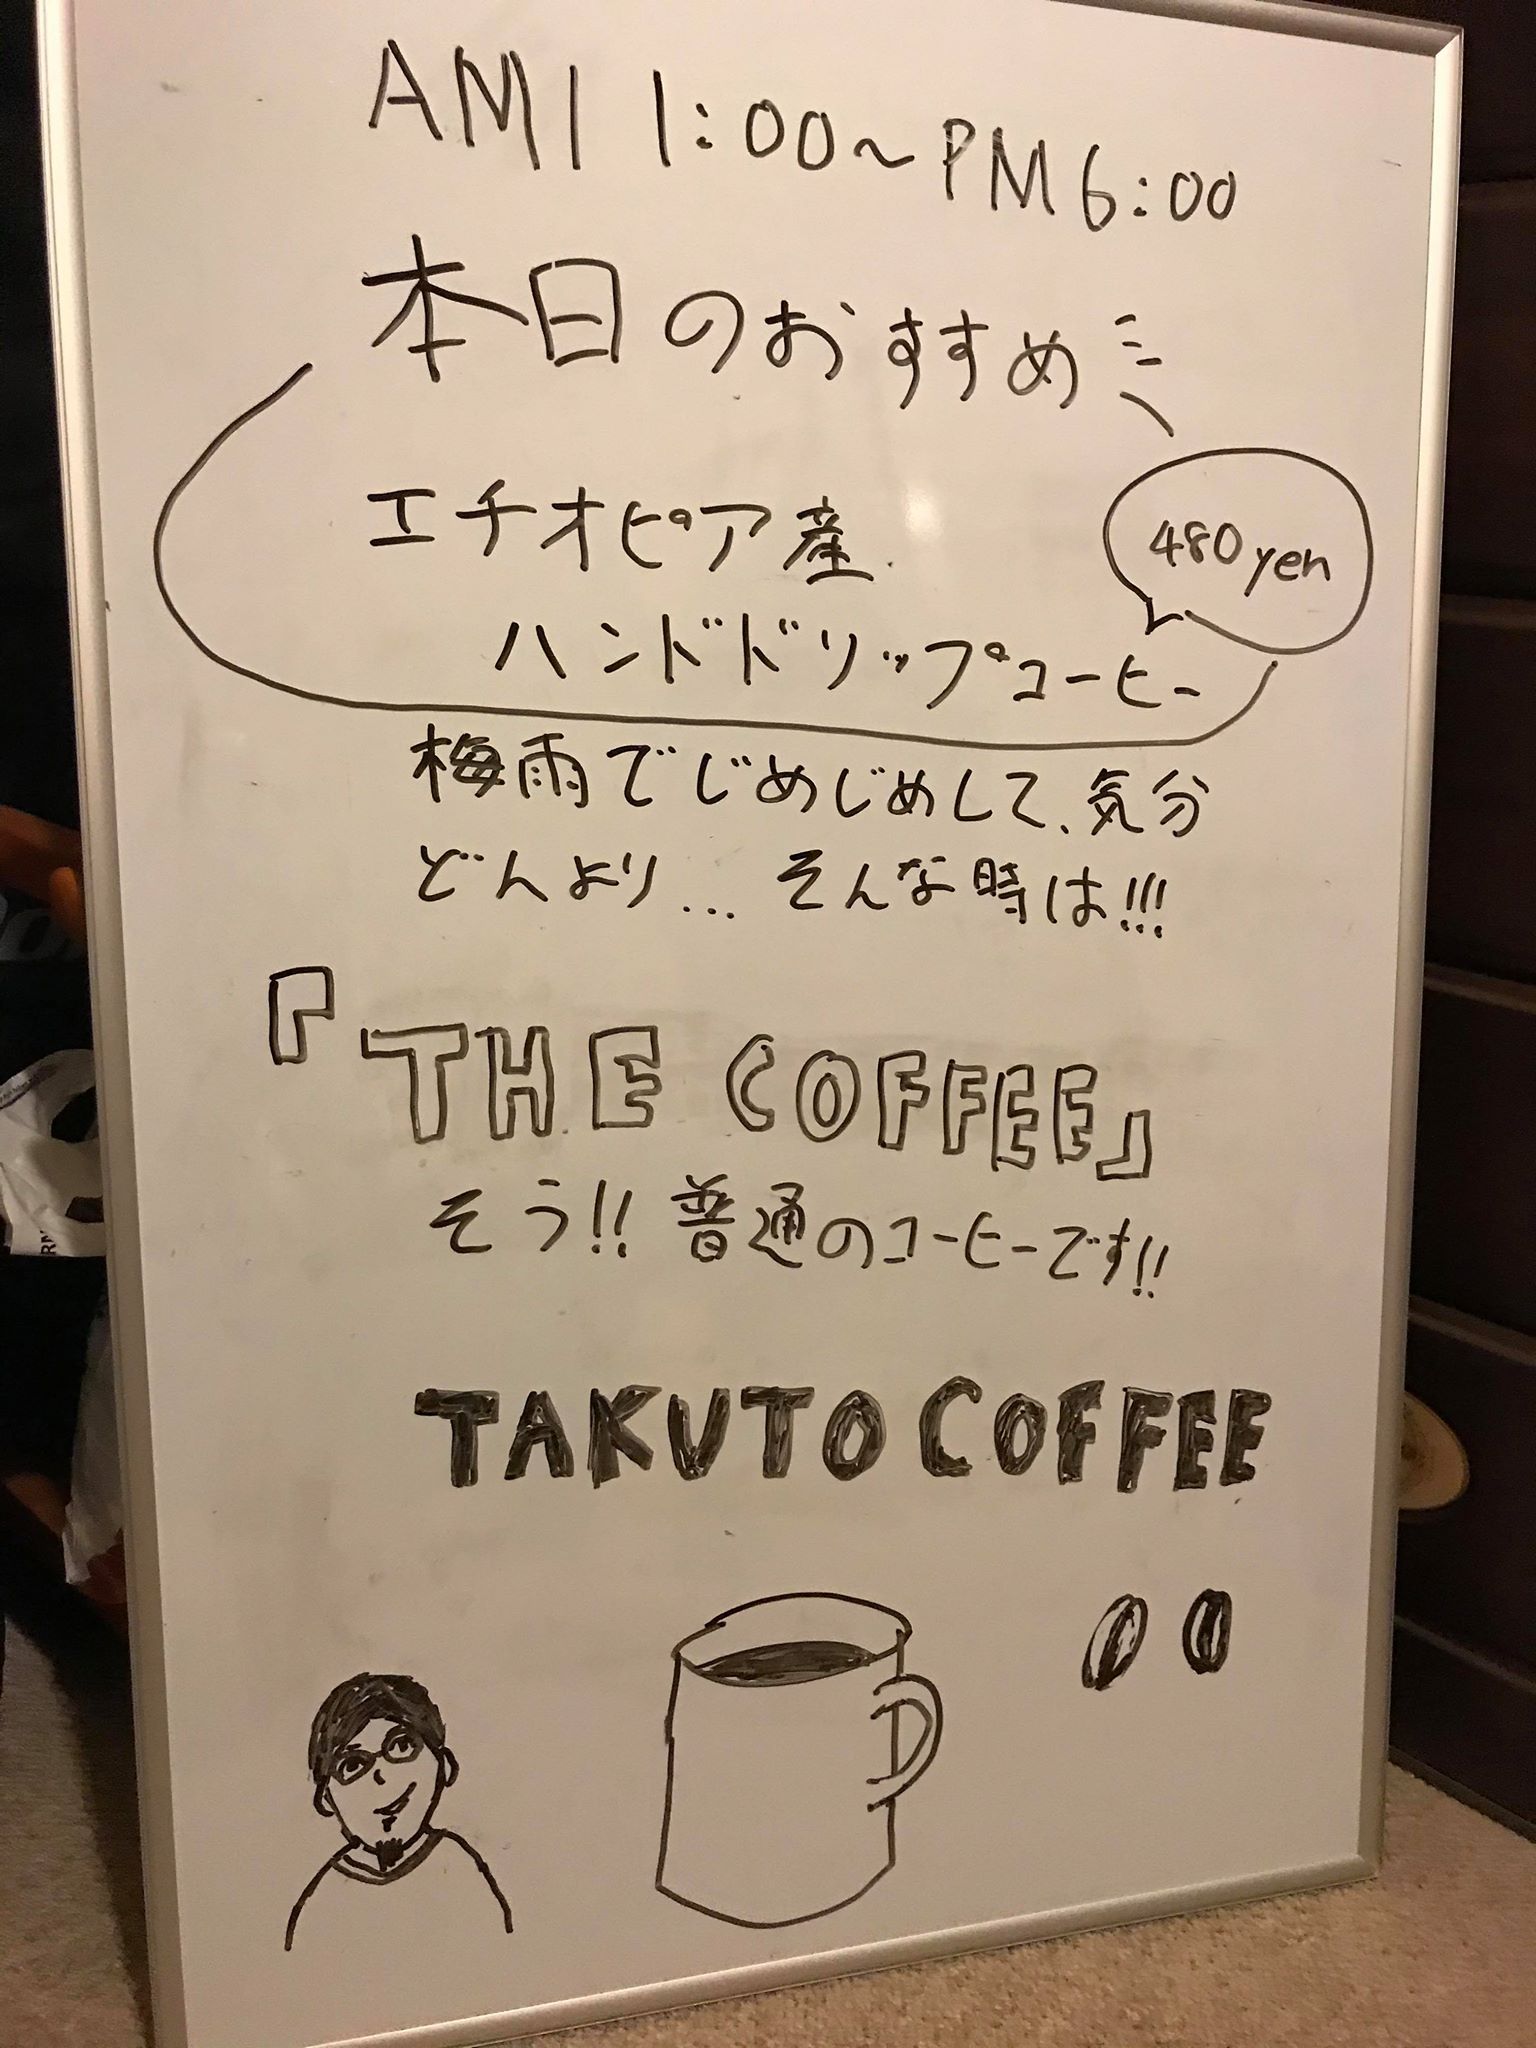 AM11:00～PM6:00
本日のおすすめ
エチオピア産
480yen
ハンドドリップコーヒー
梅雨でじめじめして、気分
どんより... そんな時は!!!
『THE COFFEE』
そう!! 普通のコーヒーです!!
TAKUTO COFFEE